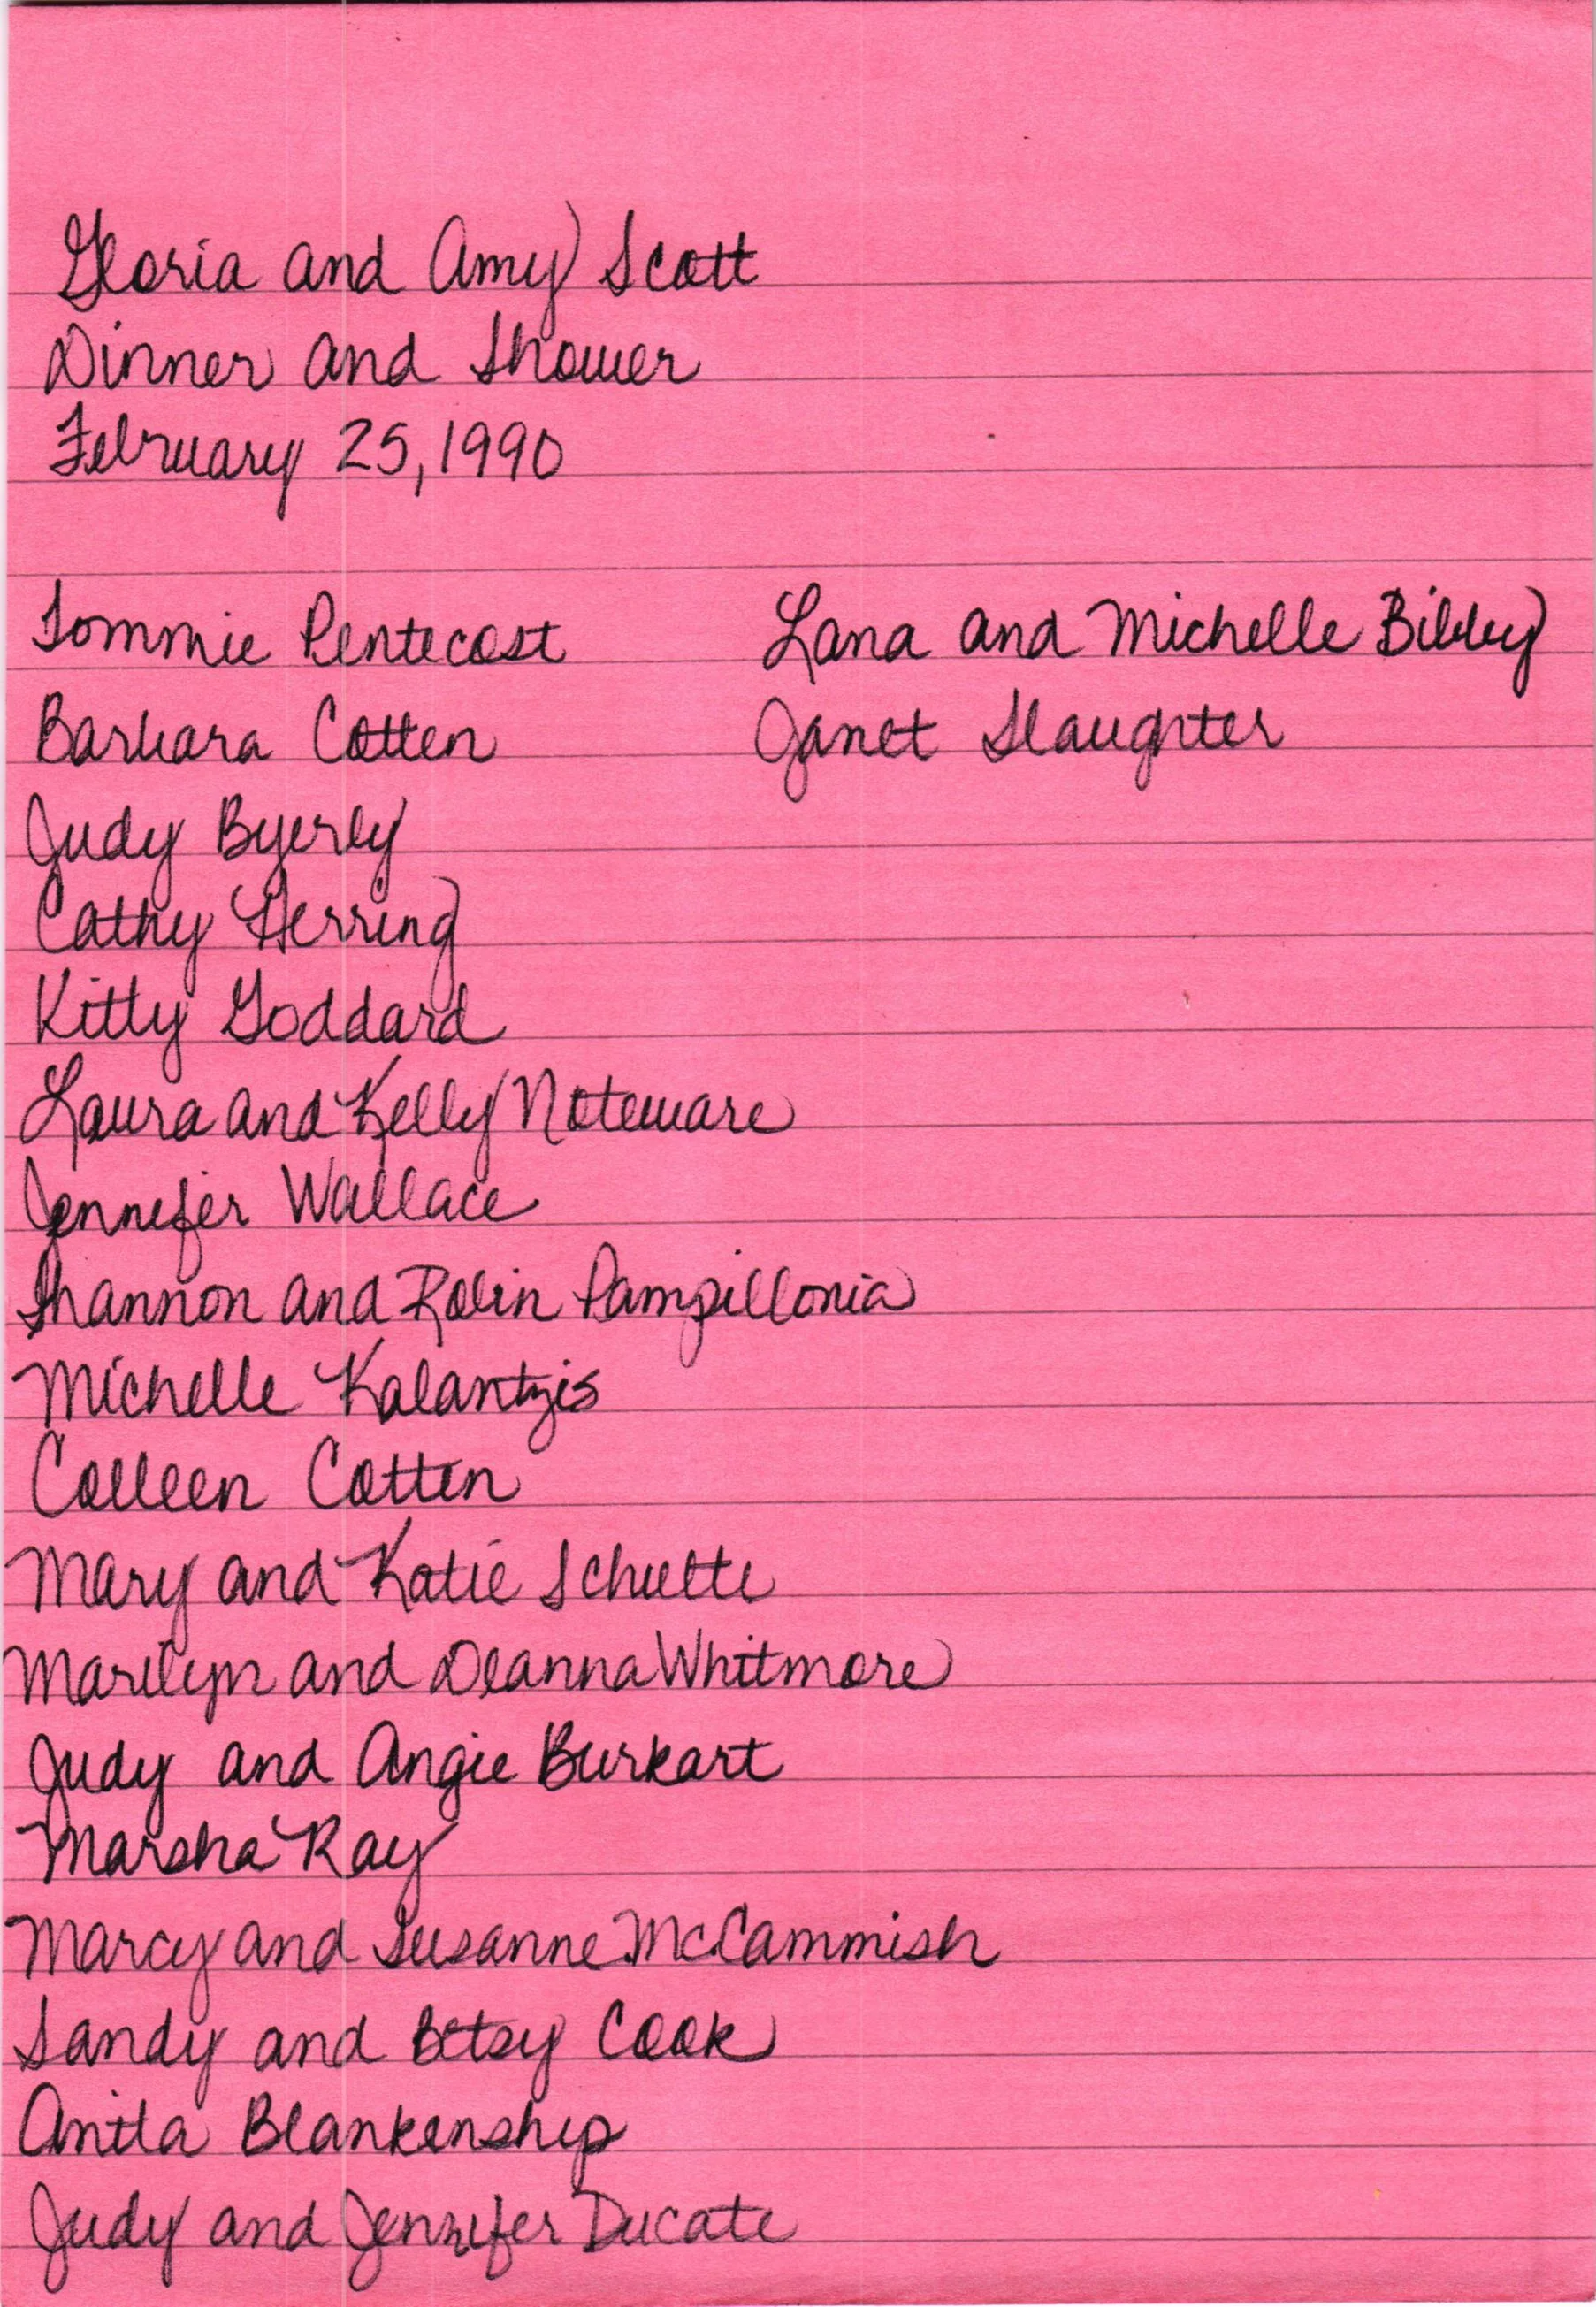 Gloria and Amy Scott
Dinner and Shower
February 25, 1990
Tommie Pentecost
Barbara Cotten
Judy Byerly
Cathy Herring
Kitty Goddard
Laura and Kelly Noteware
Jennifer Wallace
Shannon and Robin Pampillonia
Michelle Kalantzis
Colleen Cotten
Mary and Katie Schulte
Marilyn and Deanna Whitmore
Judy and Angie Burkart
Marsha Ray
Marcy and Susanne McCammish
Sandy and Betsy Cook
Anita Blankenship
Judy and Jennifer Ducate
Lana and Michelle Bibby
Janet Slaughter